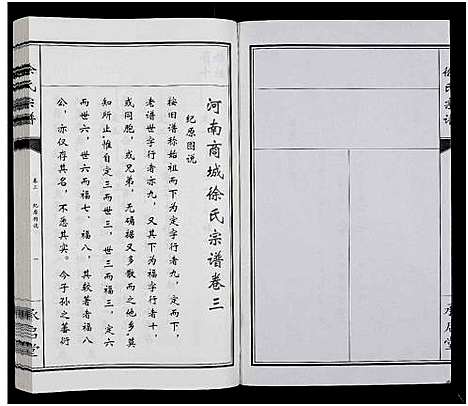 河南商城徐氏宗谱卷三
纪原图说
按旧谱称始祖而下为定字行者九，定而下为
老谱世字行者亦九，又其下为福字行者十，
或同胞，或兄弟，无确据又多散而之他乡，莫
知所止，惟自定三而世三，世三而福三，定六
而世六，世六而福七、福八，其较著者福八
公，亦仅存其名，不悉其实。今子孙之蕃衍
徐氏宗谱
卷三
纪原图说
一
承启堂
徐氏宗谱
承启堂